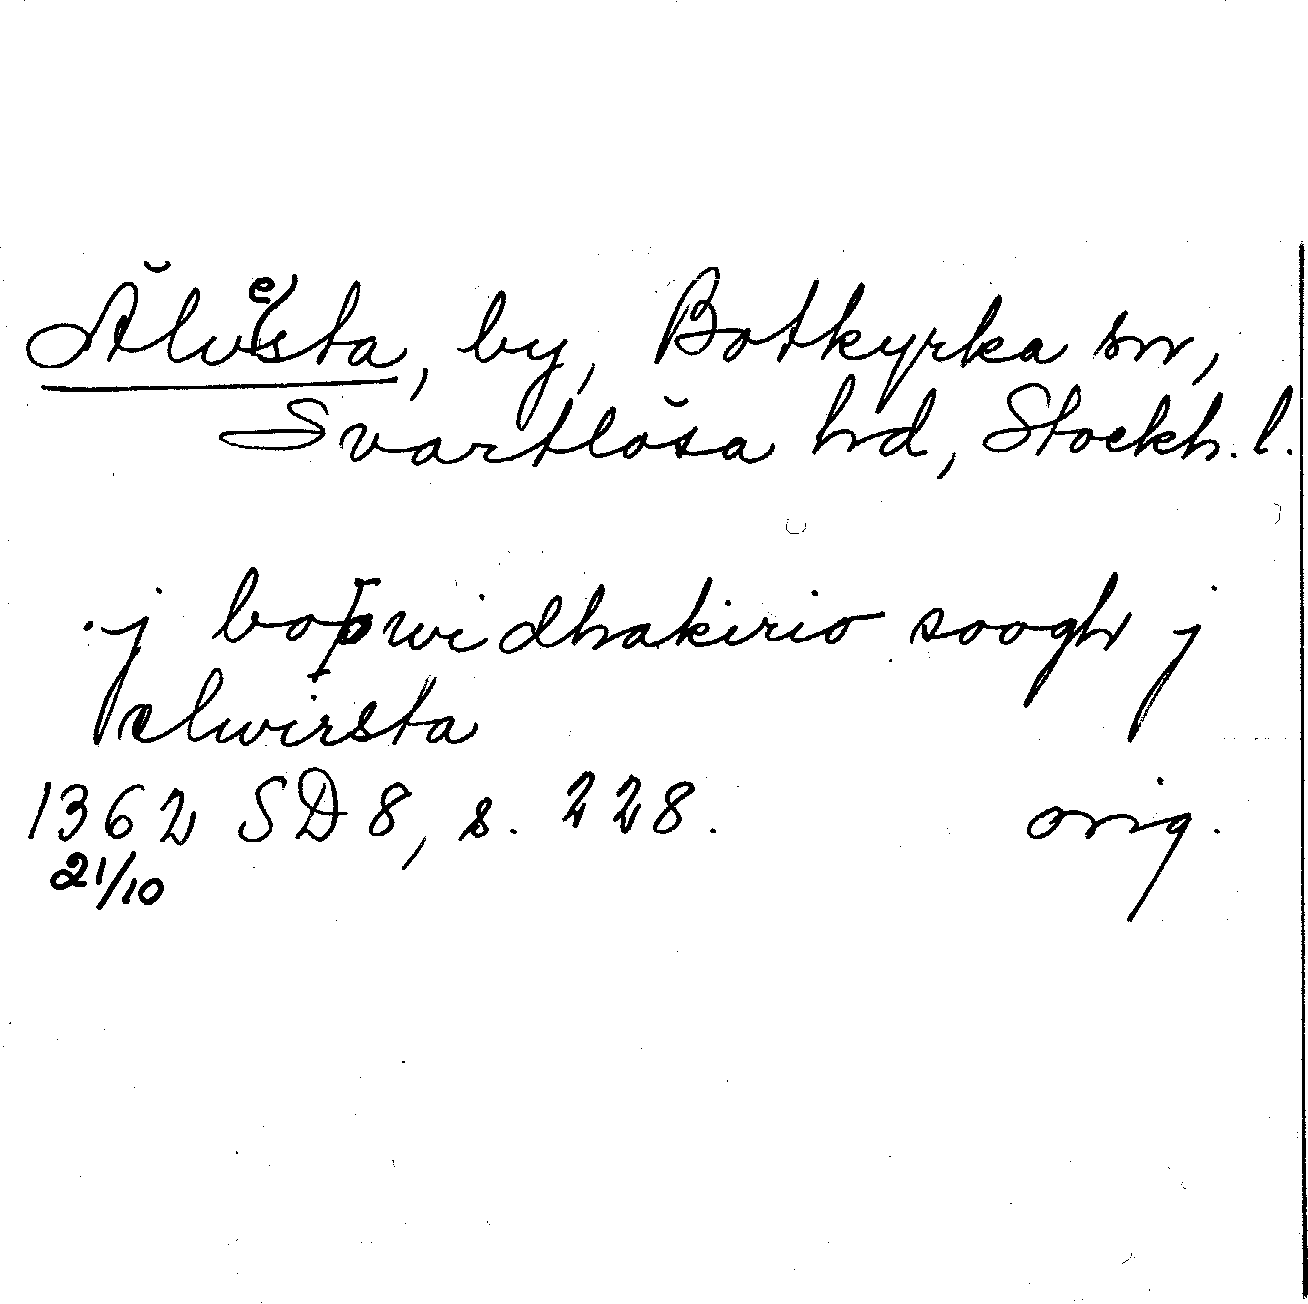 Älvesta, by, Botkyrka sn,
Svartlösa hd, Stockh. l.
.j boþwidhakirio soogh j
elwirsta
1362 SD 8, s. 228. orig.
21/10